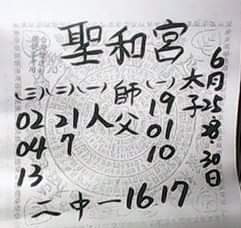 聖和宮
6月25 28 30日
太子
(一) 19 01 10
師父
人
(一) 21 7
(二)
(三) 02 04 13
二中一 16.17